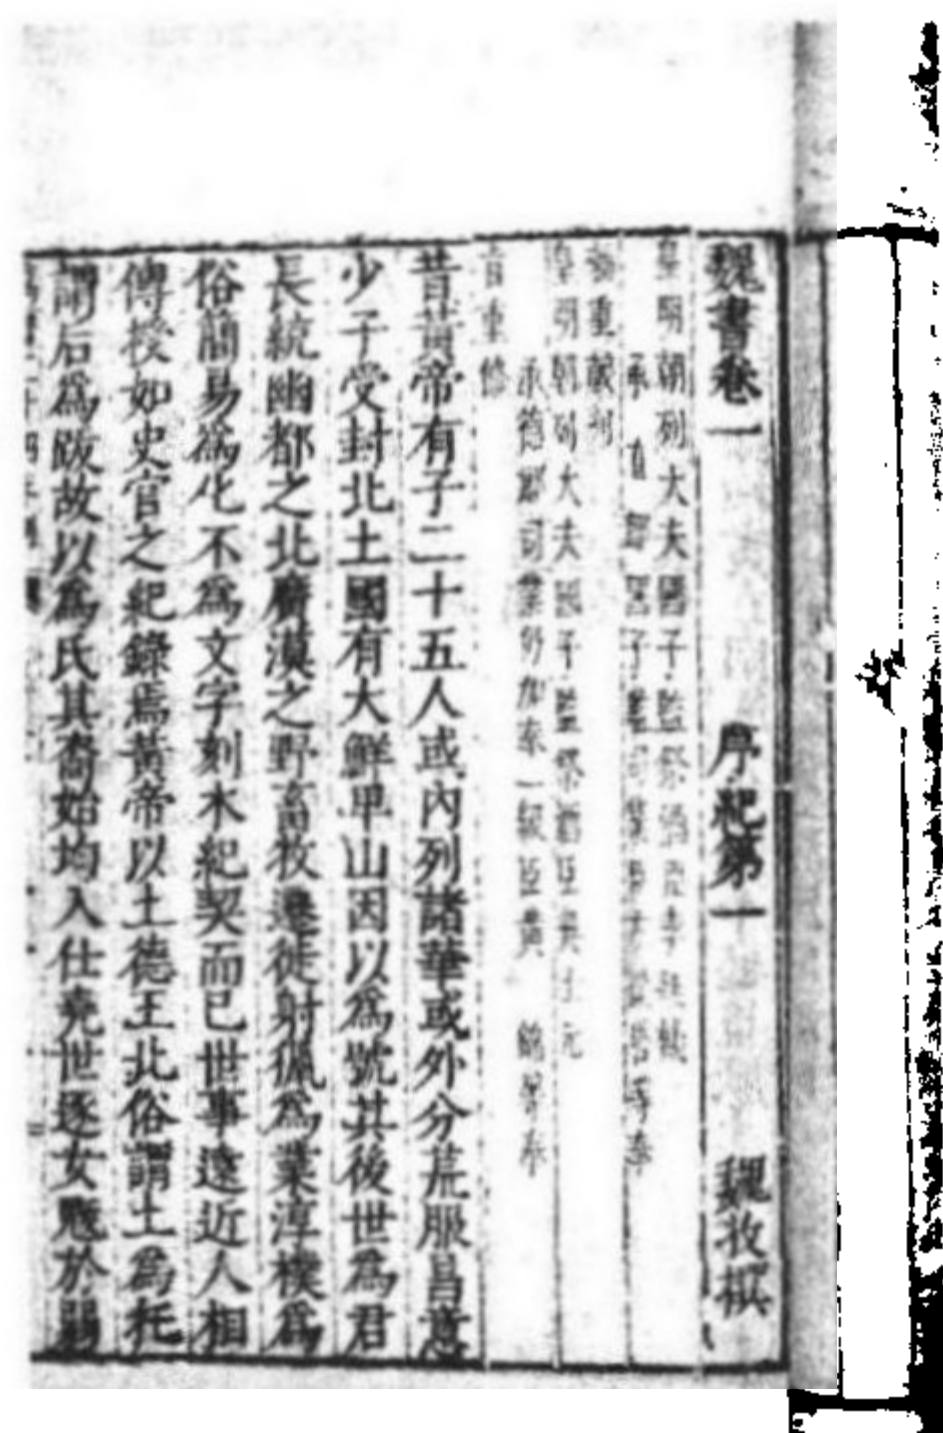 魏書卷一 序紀第一 魏收撰
皇明朝列大夫國子監祭酒
承 直郎國子監司業
敕重鋟刊
皇明朝列大夫國子監祭酒臣吳士元
承德郎司業仍加奉一級臣黃 錦等奉
旨重修
昔黃帝有子二十五人或內列諸華或外分荒服昌意
少子受封北土國有大鮮卑山因以爲號其後世爲君
長統幽都之北廣漠之野畜牧遷徙射獵爲業淳樸爲
俗簡易爲化不爲文字刻木紀契而已世事遠近人相
傳授如史官之紀錄焉黃帝以土德王北俗謂土爲托
謂后爲跋故以爲氏其裔始均入仕堯世逐女魃於弱